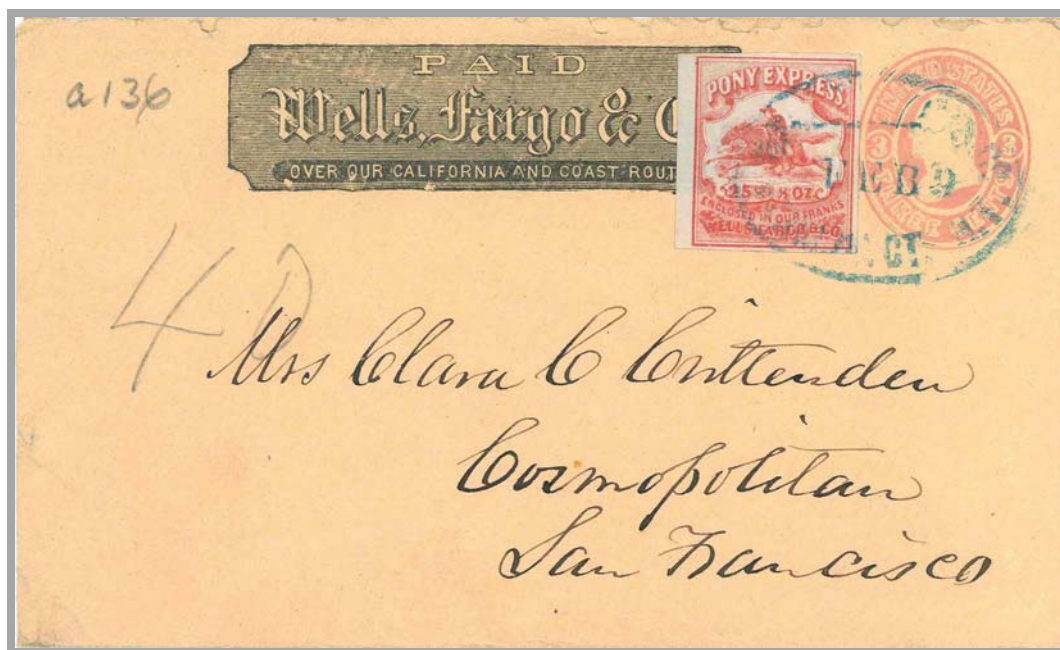 a 136
PAID
Wells, Fargo & C
OVER OUR CALIFORNIA AND COAST ROUT
PONY EXPRESS.
25 CTS ½ OZ.
ENCLOSED IN OUR FRANKS
WELLS FARGO & CO.
UNITED STATES
3 3
THREE CENTS
FEB 9
40
Mrs Clara C Crittenden
Cosmopolitan
San Francisco